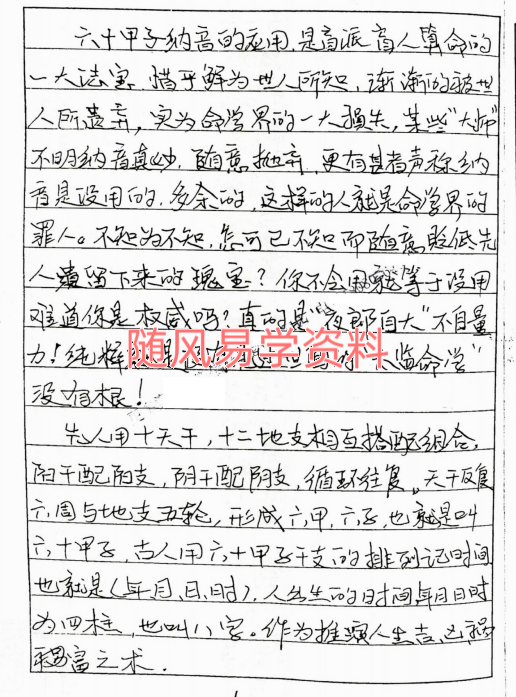 六十甲子纳音的应用,是盲派盲人算命的
一大法宝.惜乎解为世人所知,渐渐的被世
人所遗弃,实为命学界的一大损失,某些"大师"
不明纳音真妙,随意抛弃,更有甚者声称纳
音是没用的,多余的,这样的人就是命学界的
罪人。不知为不知,怎可己不知而随意贬低先
人遗留下来的瑰宝?你不会用就等于没用
难道你是权威吗?真的是"夜郎自大"不自量
力!纯粹 "太监命学"
没有根!
随风易学资料
先人用十天干,十二地支相互搭配组合,
阳干配阳支,阴干配阴支,循环往复。天干反复
六周与地支五轮,形成六甲,六子,也就是叫
六十甲子,古人用六十甲子干支的排列记时间
也就是(年月、日、时).人出生的时间年月日时
为四柱,也叫八字。作为推演人生吉凶祸
福之术.